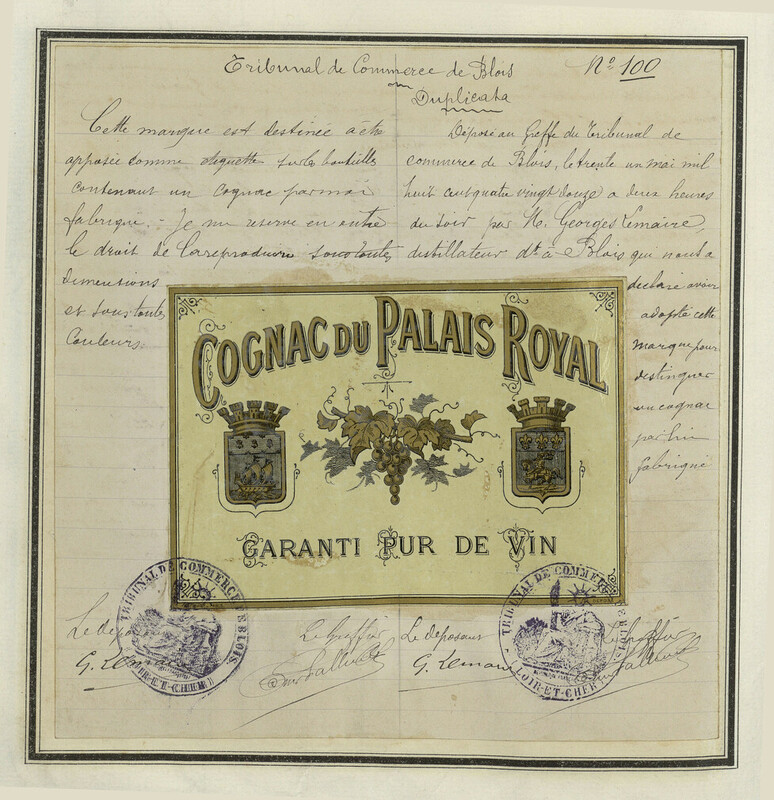 Tribunal de Commerce de Blois
Nº 100
Duplicata
Cette marque est destinée à être
apposée comme étiquette sur la bouteille
contenant un cognac par moi
fabriqué. - Je me réserve en outre
le droit de la reproduire sous toutes
dimensions
et sous toutes
couleurs.
Déposé au Greffe du Tribunal de
commerce de Blois, le trente un mai mil
huit cent quatre vingt douze a deux heures
du soir par M. Georges Lemaire,
distillateur dt à Blois qui nous a
déclaré avoir
adopté cette
marque pour
distinguer
un cognac
par lui
fabriqué
COGNAC DU PALAIS ROYAL
GARANTI PUR DE VIN
TRIBUNAL DE COMMERCE DE BLOIS
LOIR-ET-CHER
TRIBUNAL DE COMMERCE DE BLOIS
LOIR-ET-CHER
Le déposant
Le Greffier
Le déposant
Le Greffier
G. Lemaire
G. Lemaire